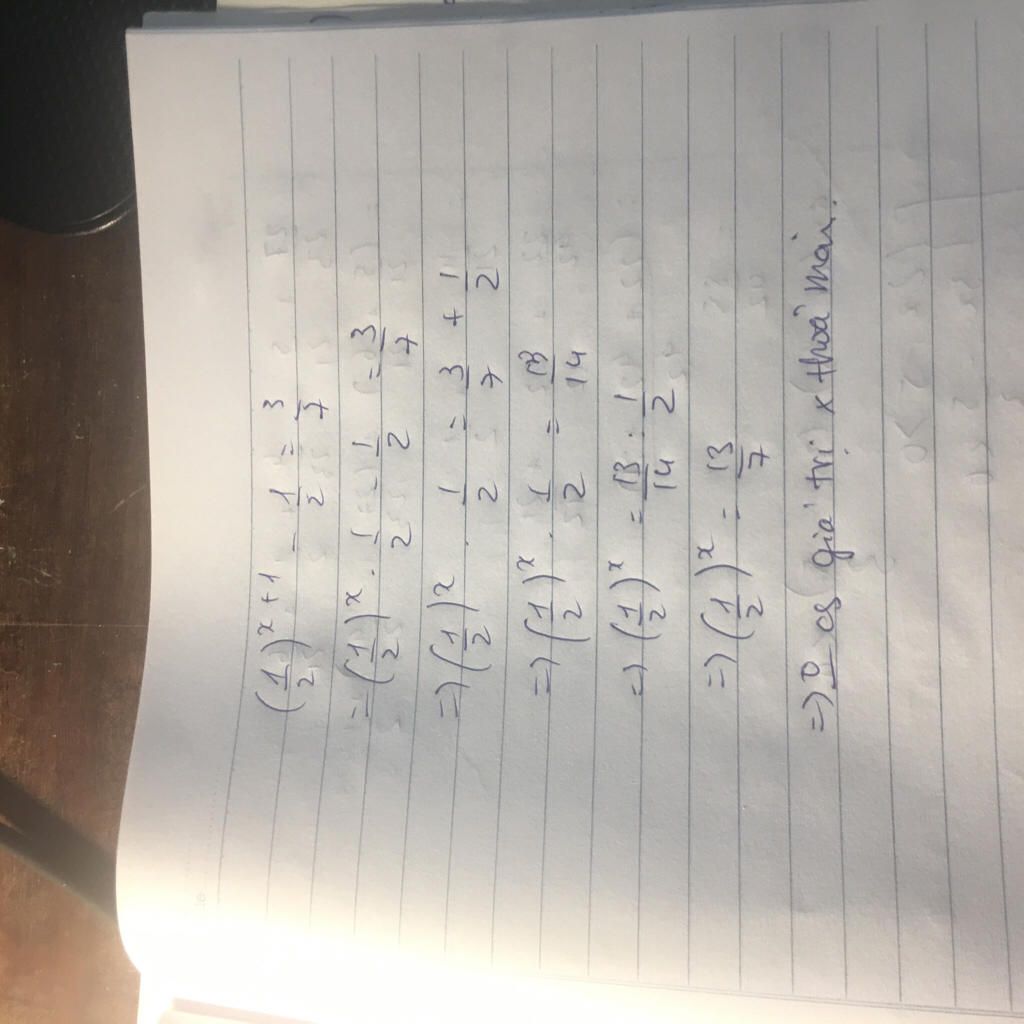 (1/2)^x+1 - 1/2 = 3/7
= (1/2)^x . 1/2 - 1/2 = 3/7
=> (1/2)^x . 1/2 = 3/7 + 1/2
=> (1/2)^x . 1/2 = 13/14
=> (1/2)^x = 13/14 : 1/2
=> (1/2)^x = 13/7
=> 0 có giá trị x thoả mãn.